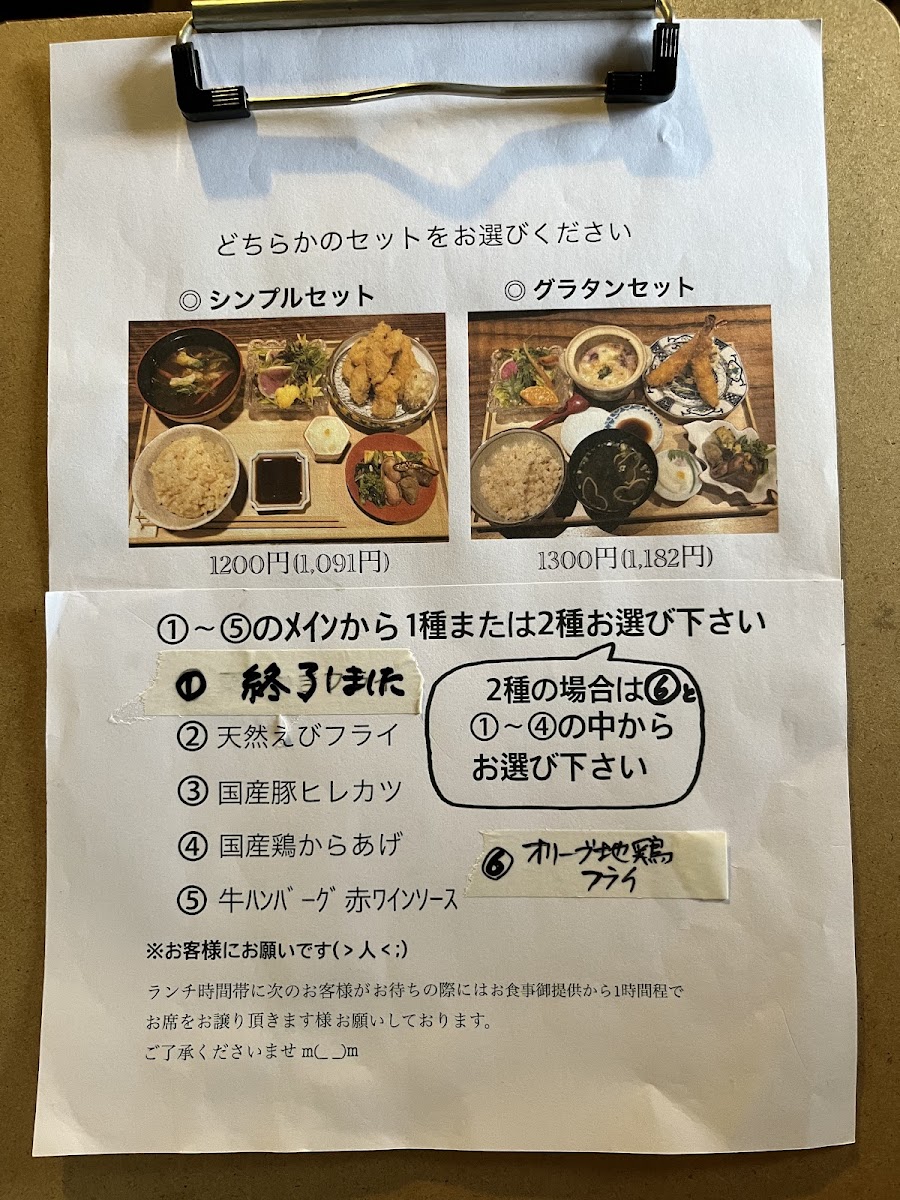 どちらかのセットをお選びください
◎ シンプルセット
◎ グラタンセット
1200円(1,091円)
1300円(1,182円)
①~⑤のﾒｲﾝから1種または2種お選び下さい
① 終了しました
2種の場合は⑥と
①~④の中から
お選び下さい
② 天然えびフライ
③ 国産豚ヒレカツ
④ 国産鶏からあげ
⑤ 牛ﾊﾝﾊﾞｰｸﾞ 赤ﾜｲﾝソース
⑥ オリーヴ地鶏
フライ
※お客様にお願いです(>人<;)
ランチ時間帯に次のお客様がお待ちの際にはお食事御提供から1時間程で
お席をお譲り頂きます様お願いしております。
ご了承くださいませ m(_ _)m